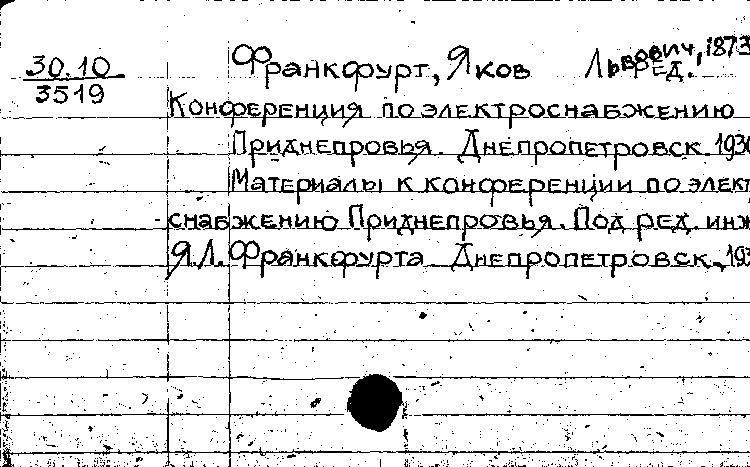 30.10
3519
Франкфурт, Яков Львович, 1873
ред.
Конференция по электроснабжению
Приднепровья. Днепропетровск. 193
Материалы к конференции по элект
снабжению Приднепровья. Под ред. инж
Я.Л. Франкфурта. Днепропетровск, 193